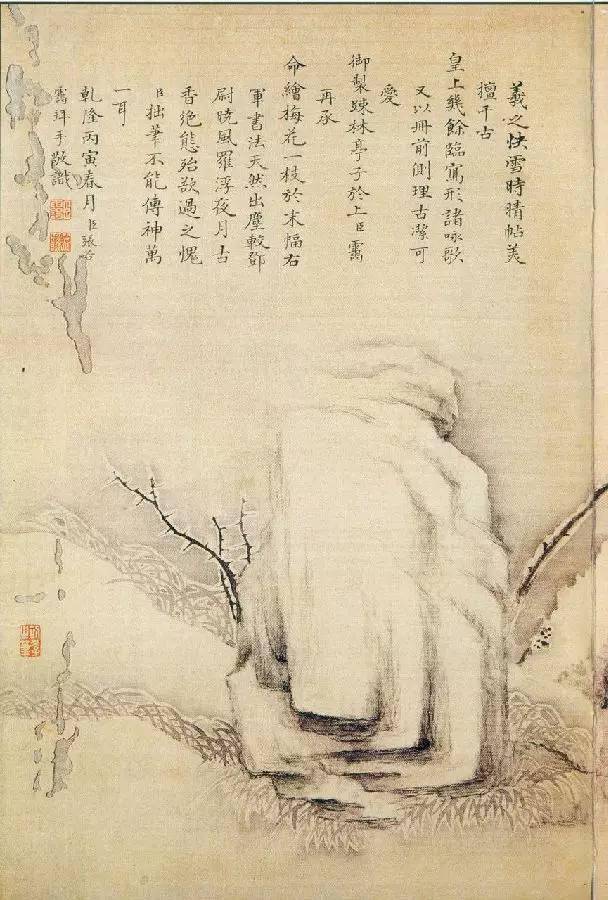 羲之快雪時晴帖美
擅千古
皇上幾餘臨寫形諸詠歌
又以冊前側理古潔可
愛
御製疎林亭子於上臣靄
再承
命繪梅花一枝於末幅右
軍書法天然出塵較鄧
尉曉風羅浮夜月古
香絶態殆欲過之愧
臣拙筆不能傳神萬
一耳
乾隆丙寅春月臣張若
靄拜手敬識